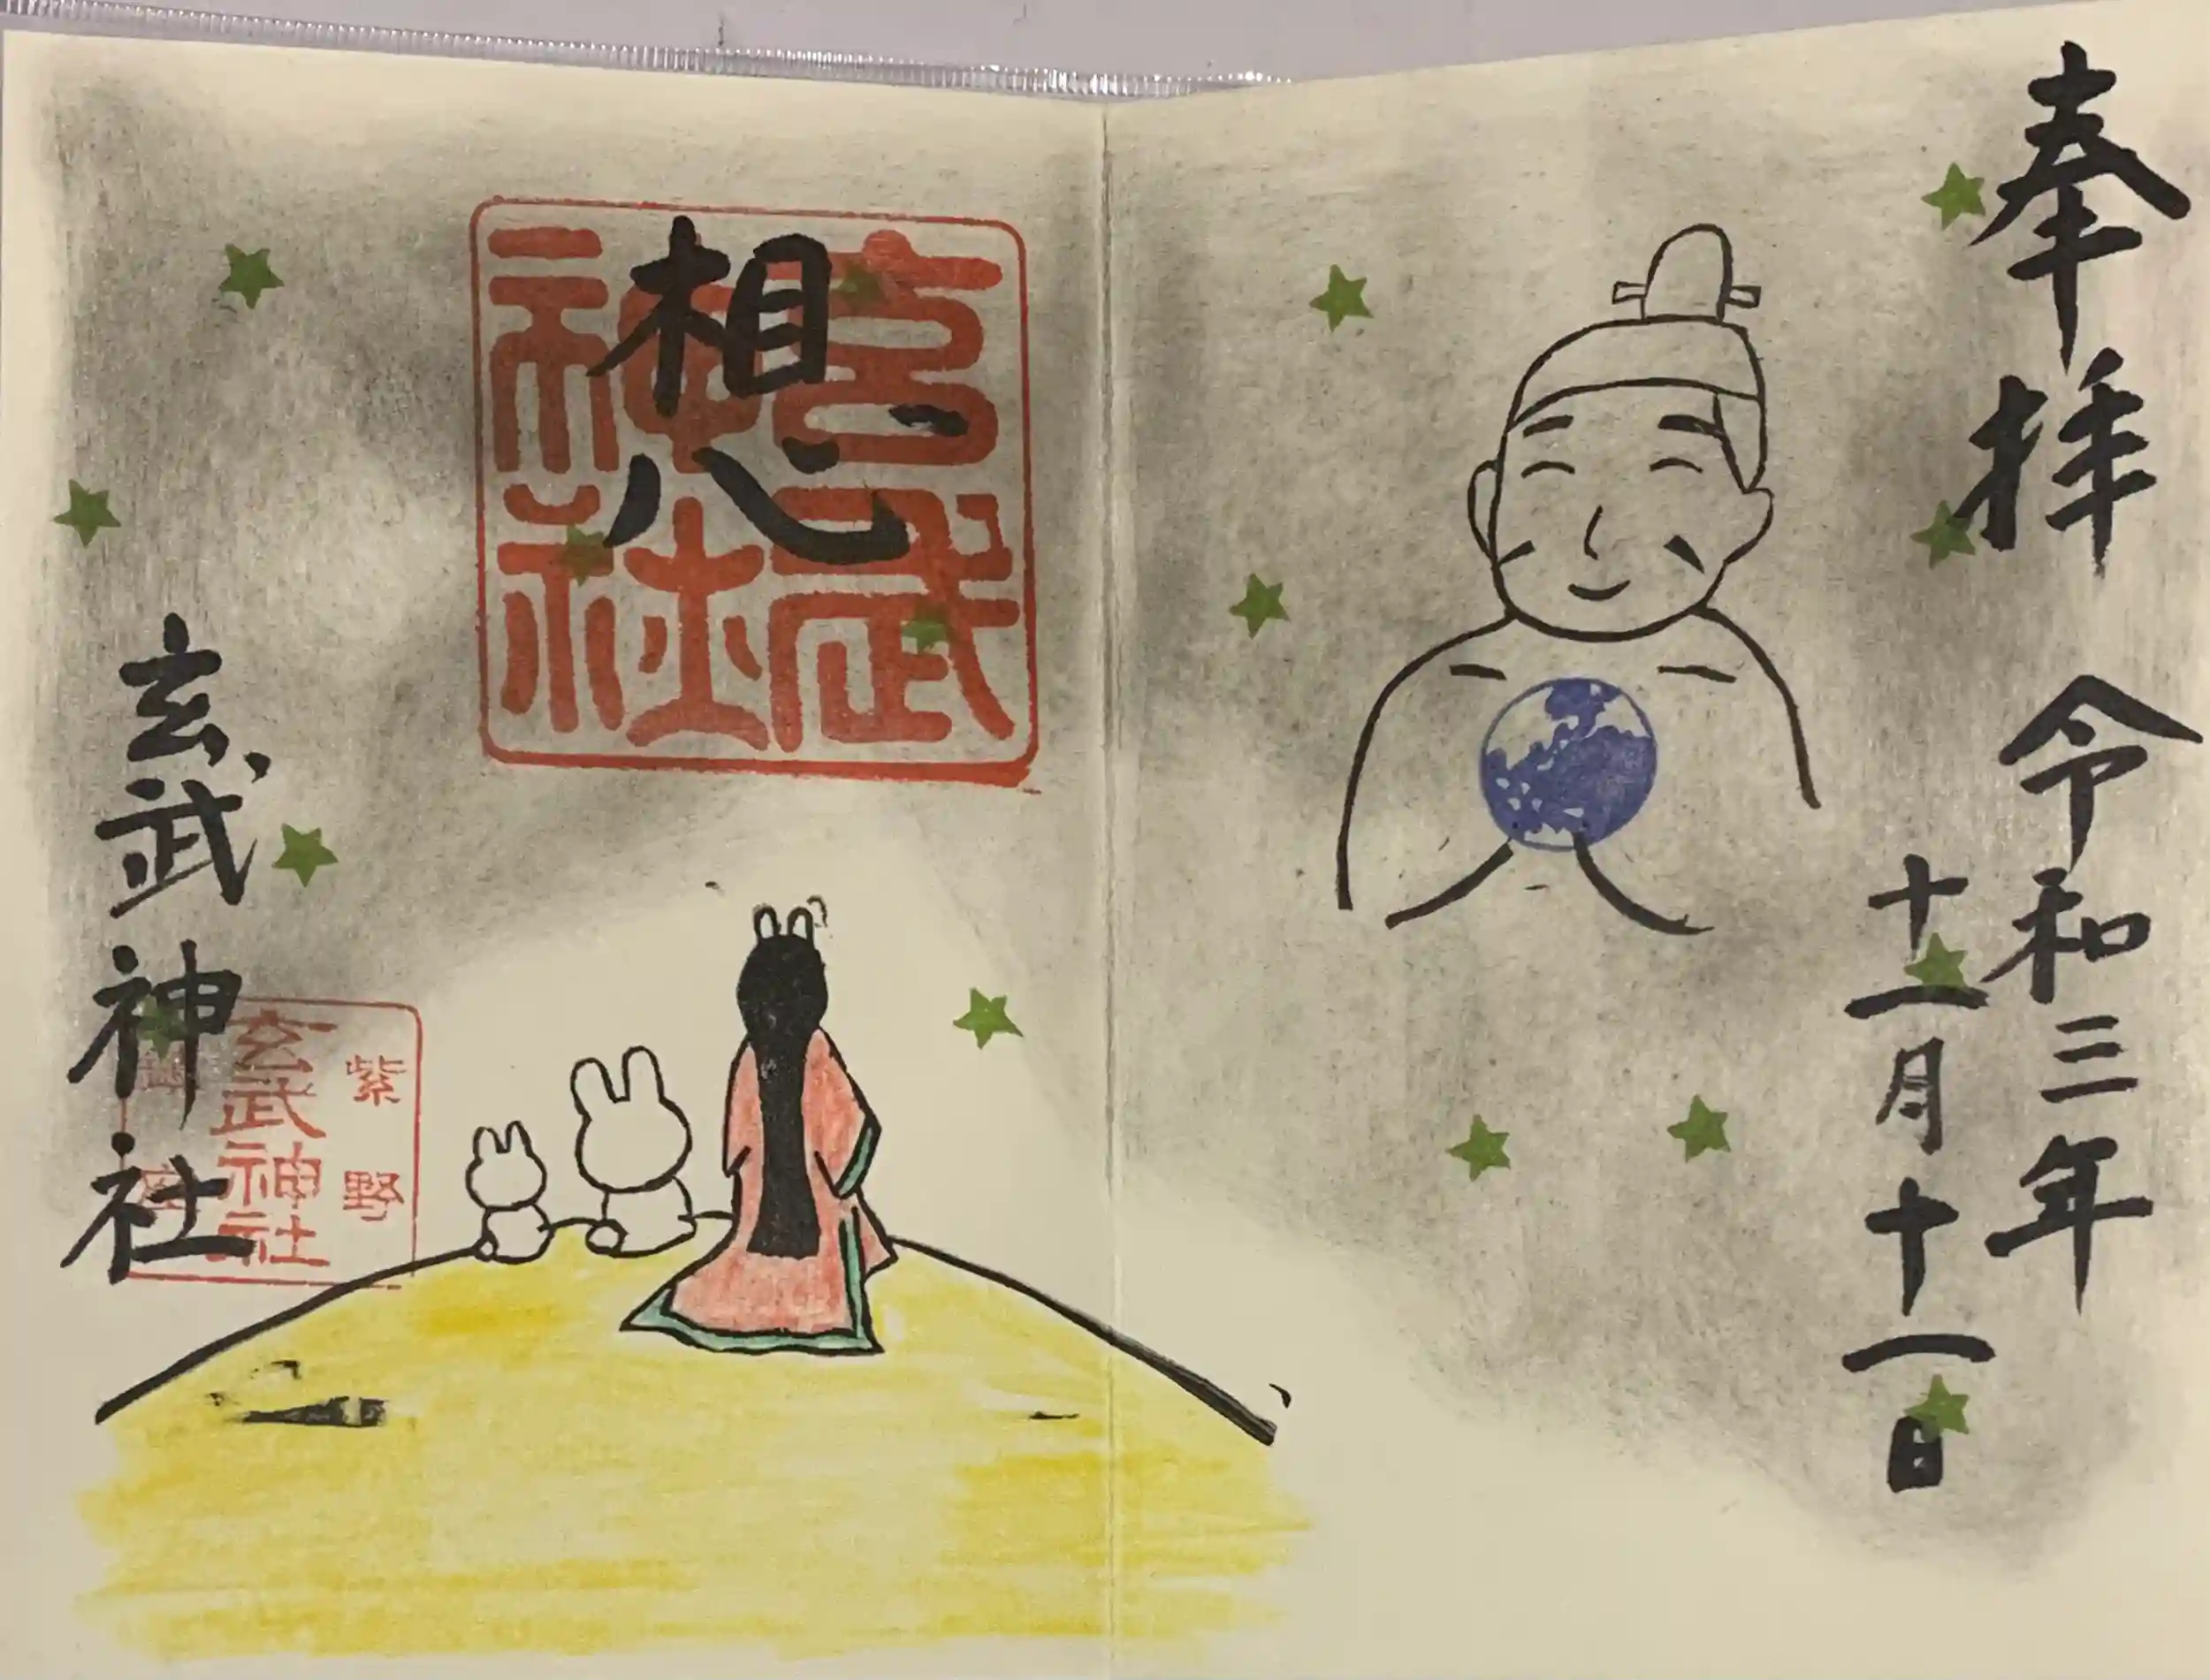 奉拝
令和三年
十一月十一日
想
玄武神社
玄武神社
紫野
玄武神社